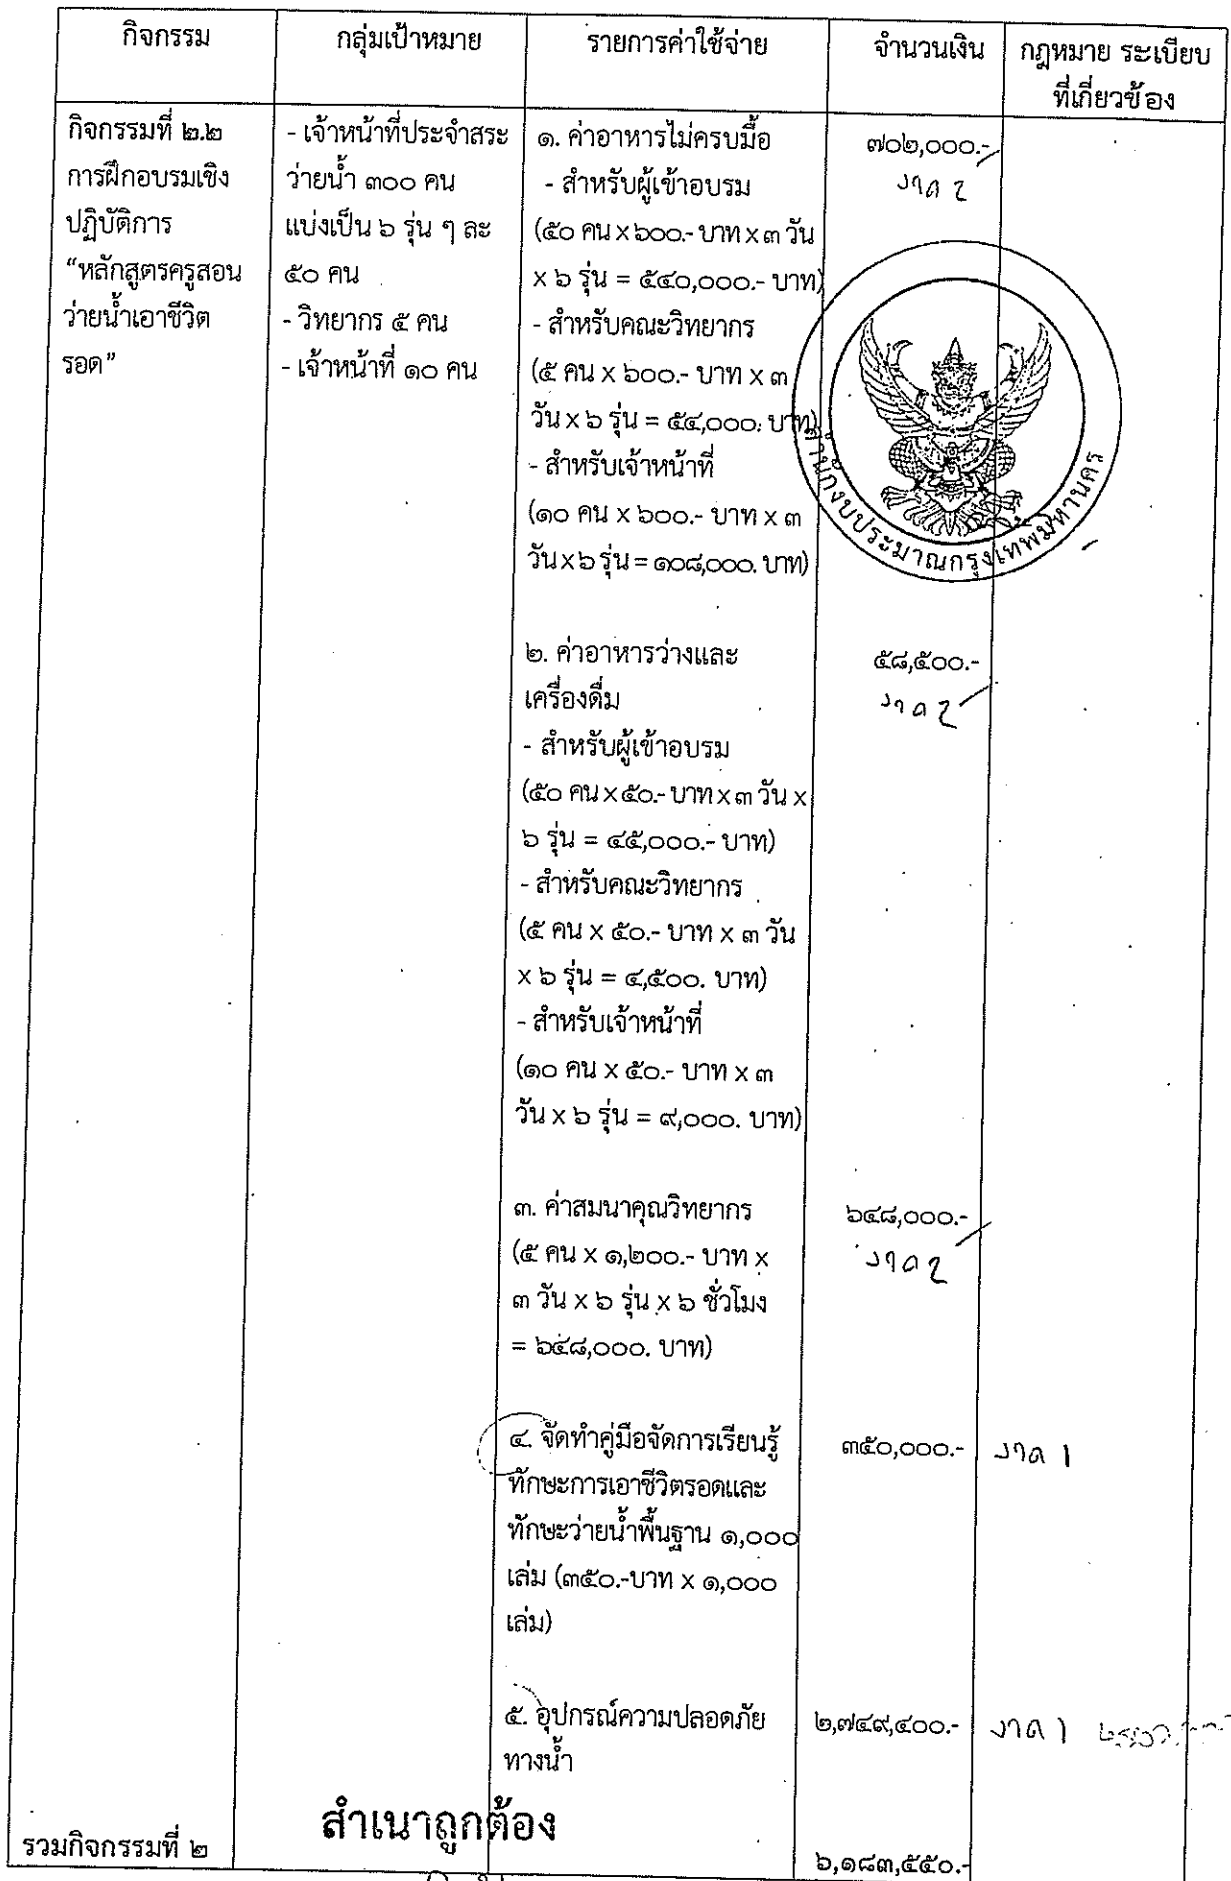 กิจกรรม
กลุ่มเป้าหมาย
รายการค่าใช้จ่าย
จำนวนเงิน
กฎหมาย ระเบียบ
ที่เกี่ยวข้อง
กิจกรรมที่ ๒.๒
การฝึกอบรมเชิง
ปฏิบัติการ
“หลักสูตรครูสอน
ว่ายน้ำเอาชีวิต
รอด”
- เจ้าหน้าที่ประจำสระ
ว่ายน้ำ ๓๐๐ คน
แบ่งเป็น ๖ รุ่น ๆ ละ
๕๐ คน
- วิทยากร ๕ คน
- เจ้าหน้าที่ ๑๐ คน
๑. ค่าอาหารไม่ครบมื้อ
- สำหรับผู้เข้าอบรม
(๕๐ คน x ๖๐๐.- บาท x ๓ วัน
x ๖ รุ่น = ๕๔๐,๐๐๐.- บาท)
- สำหรับคณะวิทยากร
(๕ คน x ๖๐๐.- บาท x ๓
วัน x ๖ รุ่น = ๕๔,๐๐๐. บาท)
- สำหรับเจ้าหน้าที่
(๑๐ คน x ๖๐๐.- บาท x ๓
วัน x ๖ รุ่น = ๑๐๘,๐๐๐. บาท)
๗๐๒,๐๐๐.-
งวด 2
สำนักงบประมาณกรุงเทพมหานคร
๒. ค่าอาหารว่างและ
เครื่องดื่ม
- สำหรับผู้เข้าอบรม
(๕๐ คน x ๕๐.- บาท x ๓ วัน x
๖ รุ่น = ๔๕,๐๐๐.- บาท)
- สำหรับคณะวิทยากร
(๕ คน x ๕๐.- บาท x ๓ วัน
x ๖ รุ่น = ๔,๕๐๐. บาท)
- สำหรับเจ้าหน้าที่
(๑๐ คน x ๕๐.- บาท x ๓
วัน x ๖ รุ่น = ๙,๐๐๐. บาท)
๕๘,๕๐๐.-
งวด 2
๓. ค่าสมนาคุณวิทยากร
(๕ คน x ๑,๒๐๐.- บาท x
๓ วัน x ๖ รุ่น x ๖ ชั่วโมง
= ๖๔๘,๐๐๐. บาท)
๖๔๘,๐๐๐.-
งวด 2
๔. จัดทำคู่มือจัดการเรียนรู้
ทักษะการเอาชีวิตรอดและ
ทักษะว่ายน้ำพื้นฐาน ๑,๐๐๐
เล่ม (๓๕๐.-บาท x ๑,๐๐๐
เล่ม)
๓๕๐,๐๐๐.-
งวด 1
๕. อุปกรณ์ความปลอดภัย
ทางน้ำ
๒,๗๔๙,๔๐๐.-
งวด 1
สำเนาถูกต้อง
รวมกิจกรรมที่ ๒
๖,๑๘๓,๕๕๐.-